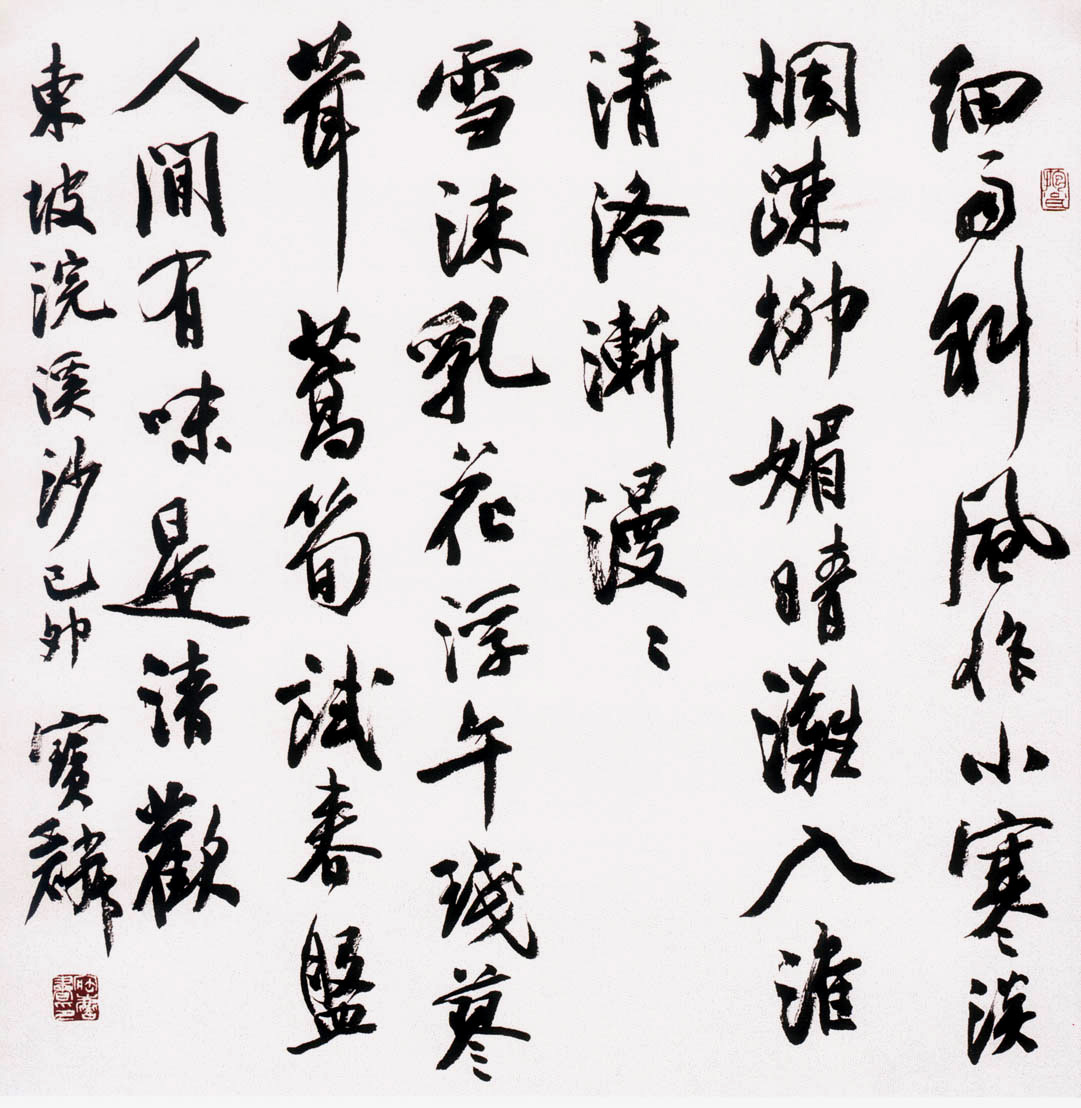 細雨斜風作小寒淡
烟疎柳媚晴灘入淮
清洛漸漫〻
雪沫乳花浮午琖蓼
茸蒿筍試春盤
人間有味是清歡
東坡浣溪沙己卯 寶麟